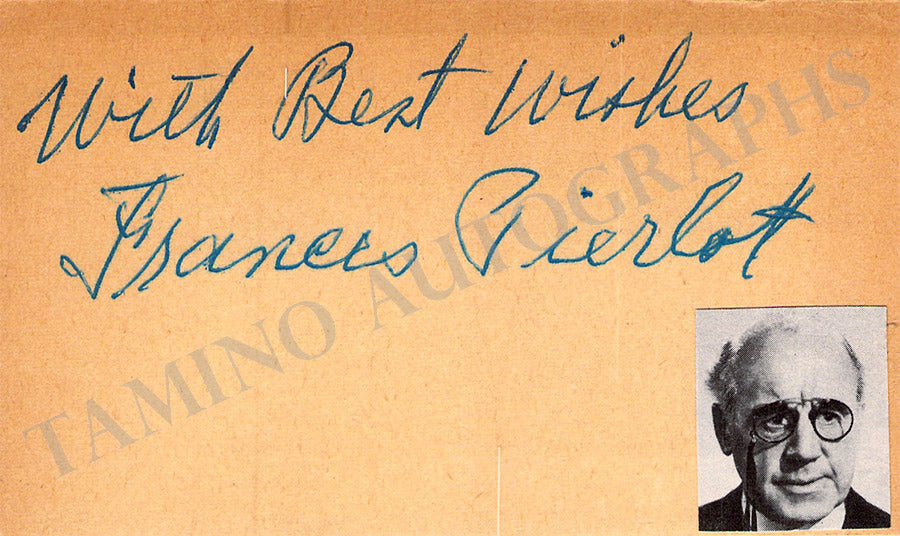 With Best Wishes
Francis Pierlot
TAMINO AUTOGRAPHS